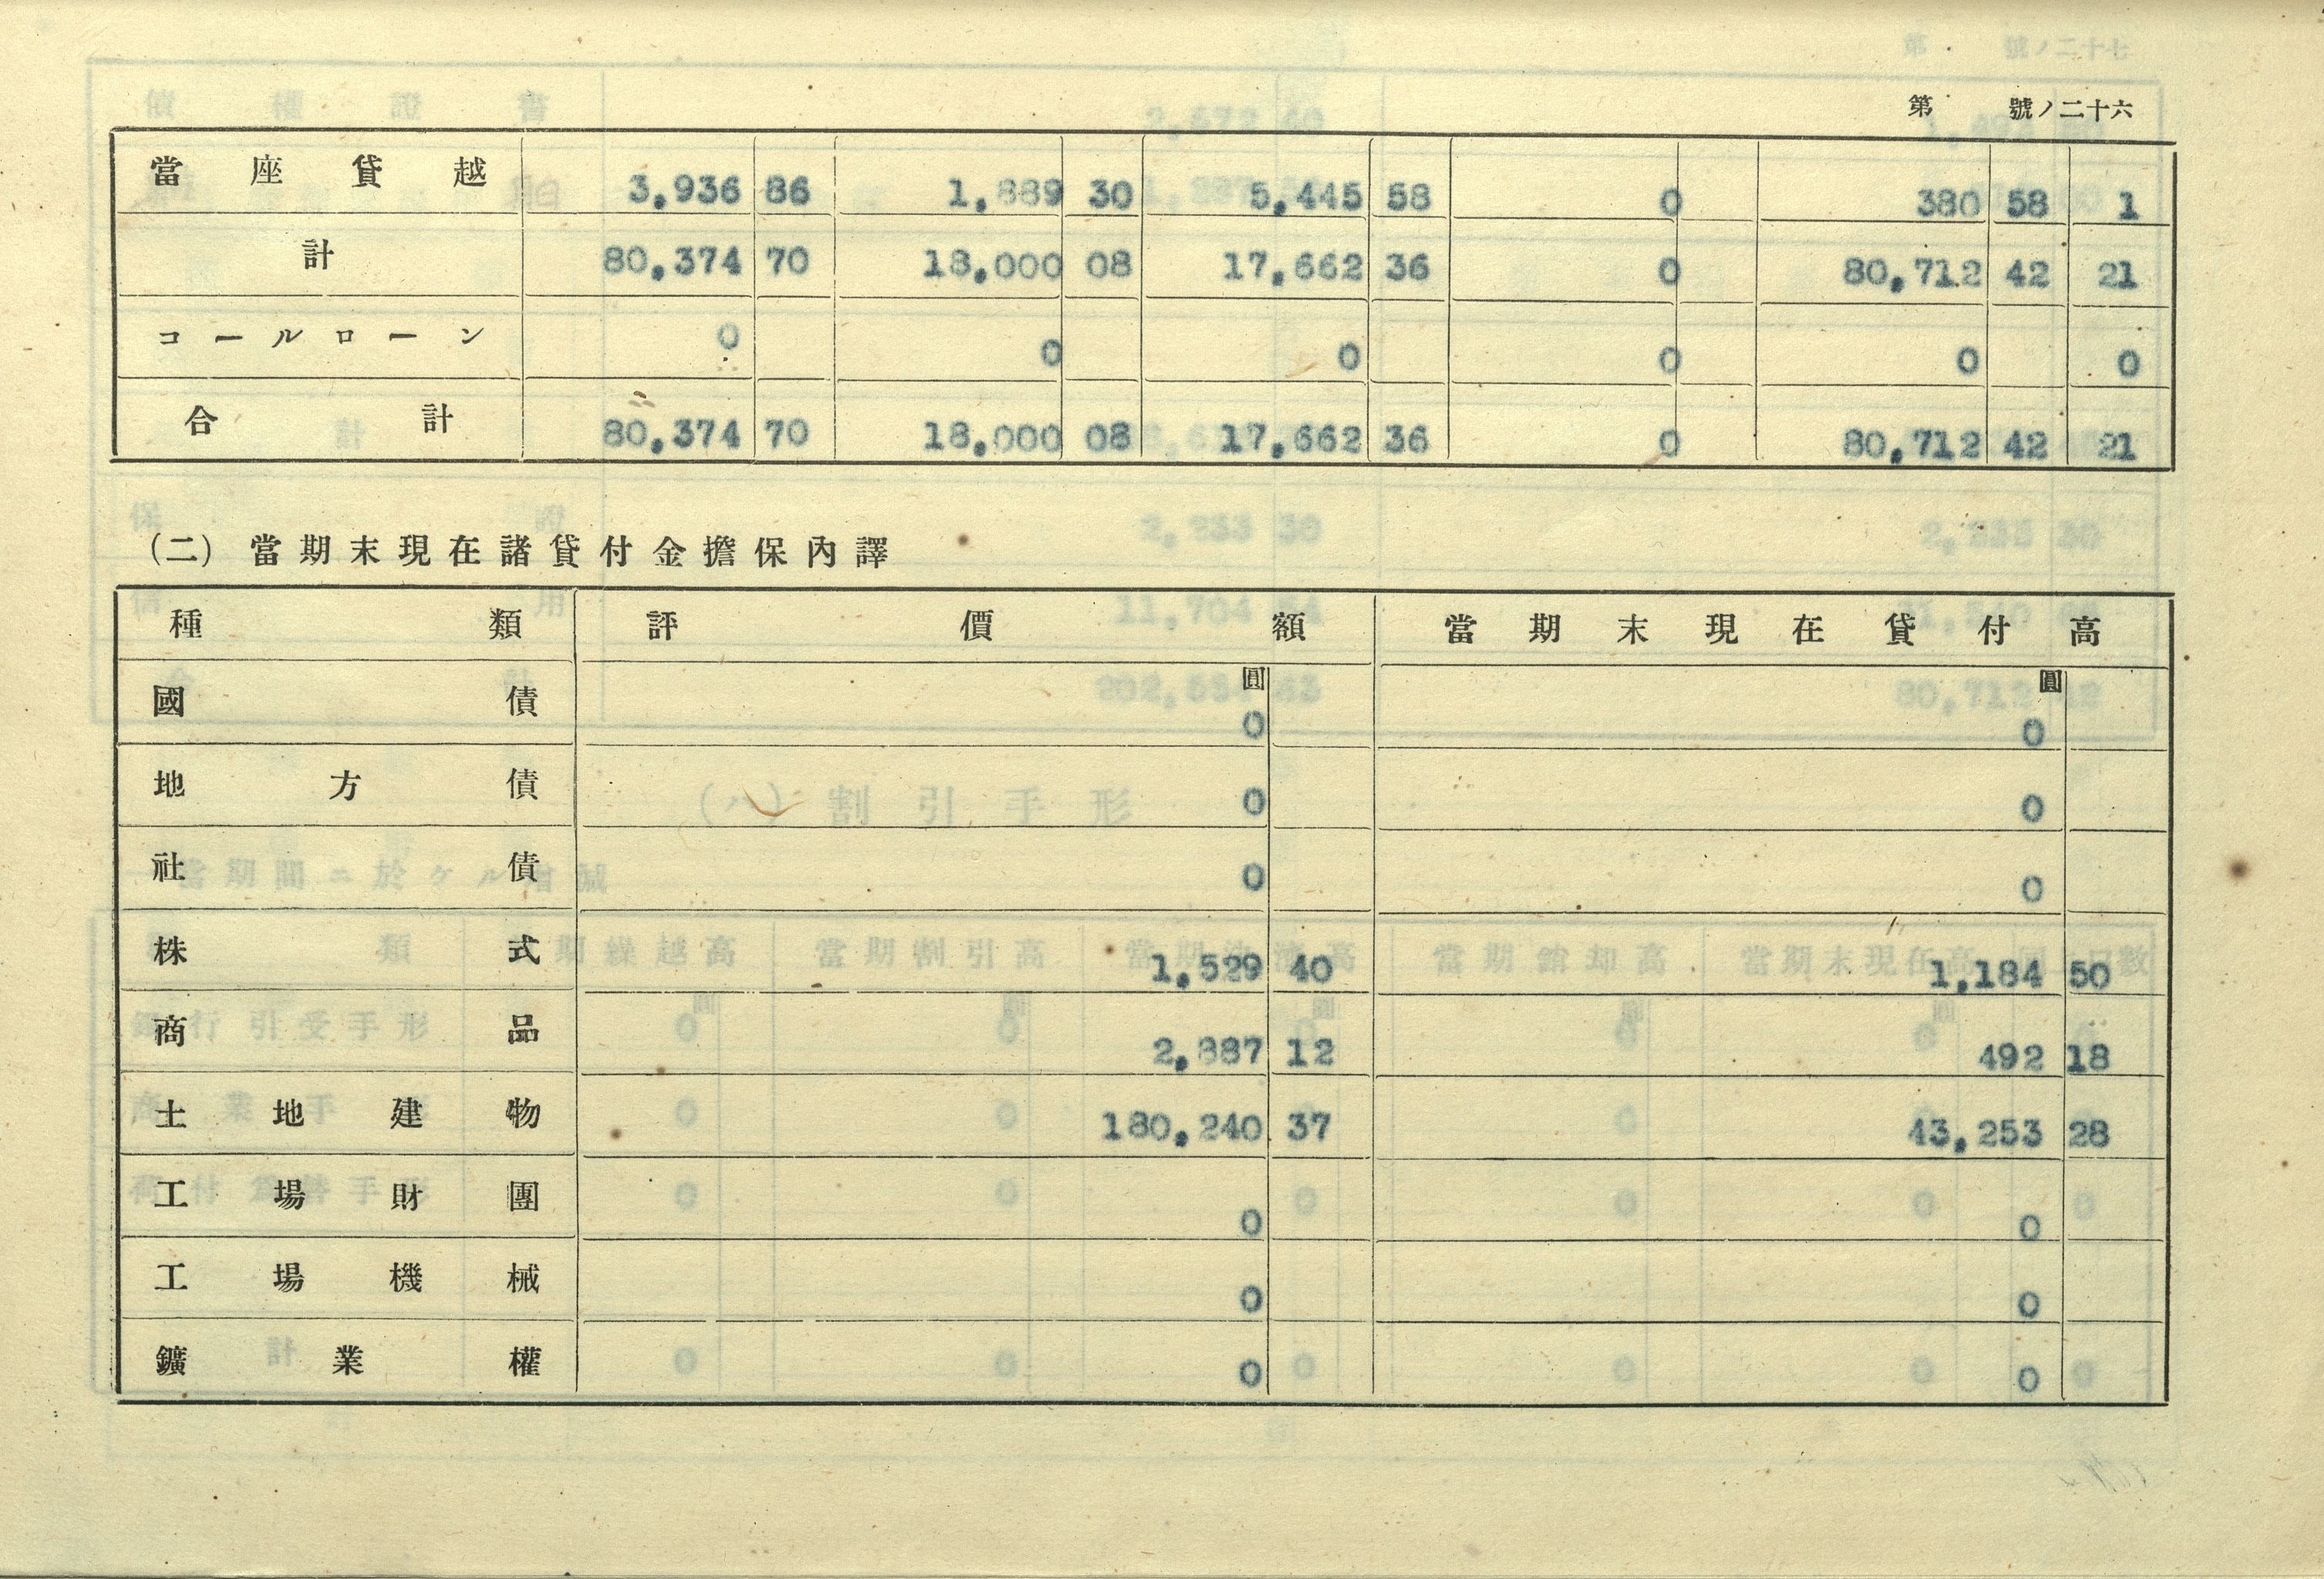 第 號ノ二十六
當座貸越 3,936 86 1,889 30 5,445 58 0 380 58 1
計 80,374 70 18,000 08 17,662 36 0 80,712 42 21
コールローン 0 0 0 0 0 0
合計 80,374 70 18,000 08 17,662 36 0 80,712 42 21
(二) 當期末現在諸貸付金擔保內譯
種類 評價額 當期末現在貸付高
圓 圓
國債 0 0
地方債 0 0
社債 0 0
株式 1,529 40 1,184 50
商品 2,887 12 492 18
土地建物 180,240 37 43,253 28
工場財團 0 0
工場機械 0 0
鑛業權 0 0